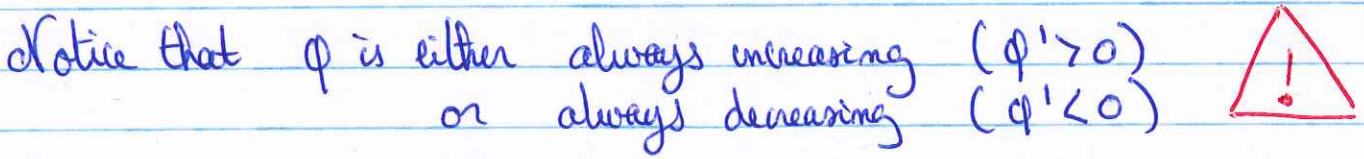 Notice that φ is either always increasing (φ'>0)
or always decreasing (φ'<0)
!